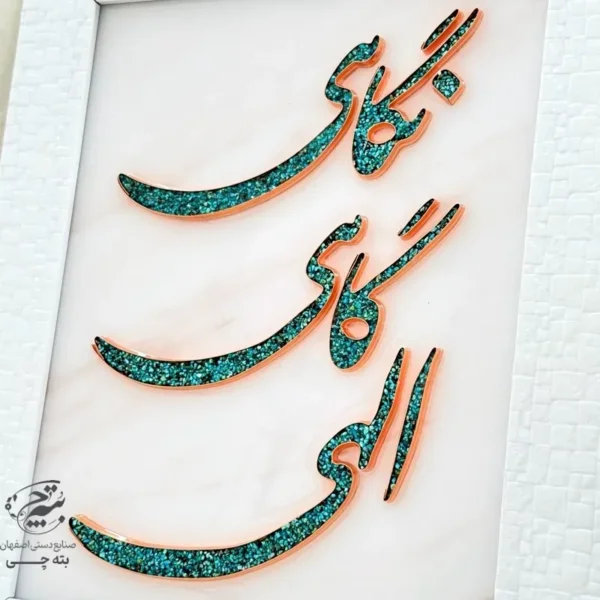 نگاهی
گاهی
الهی
صنایع دستی اصفهان
بته چی